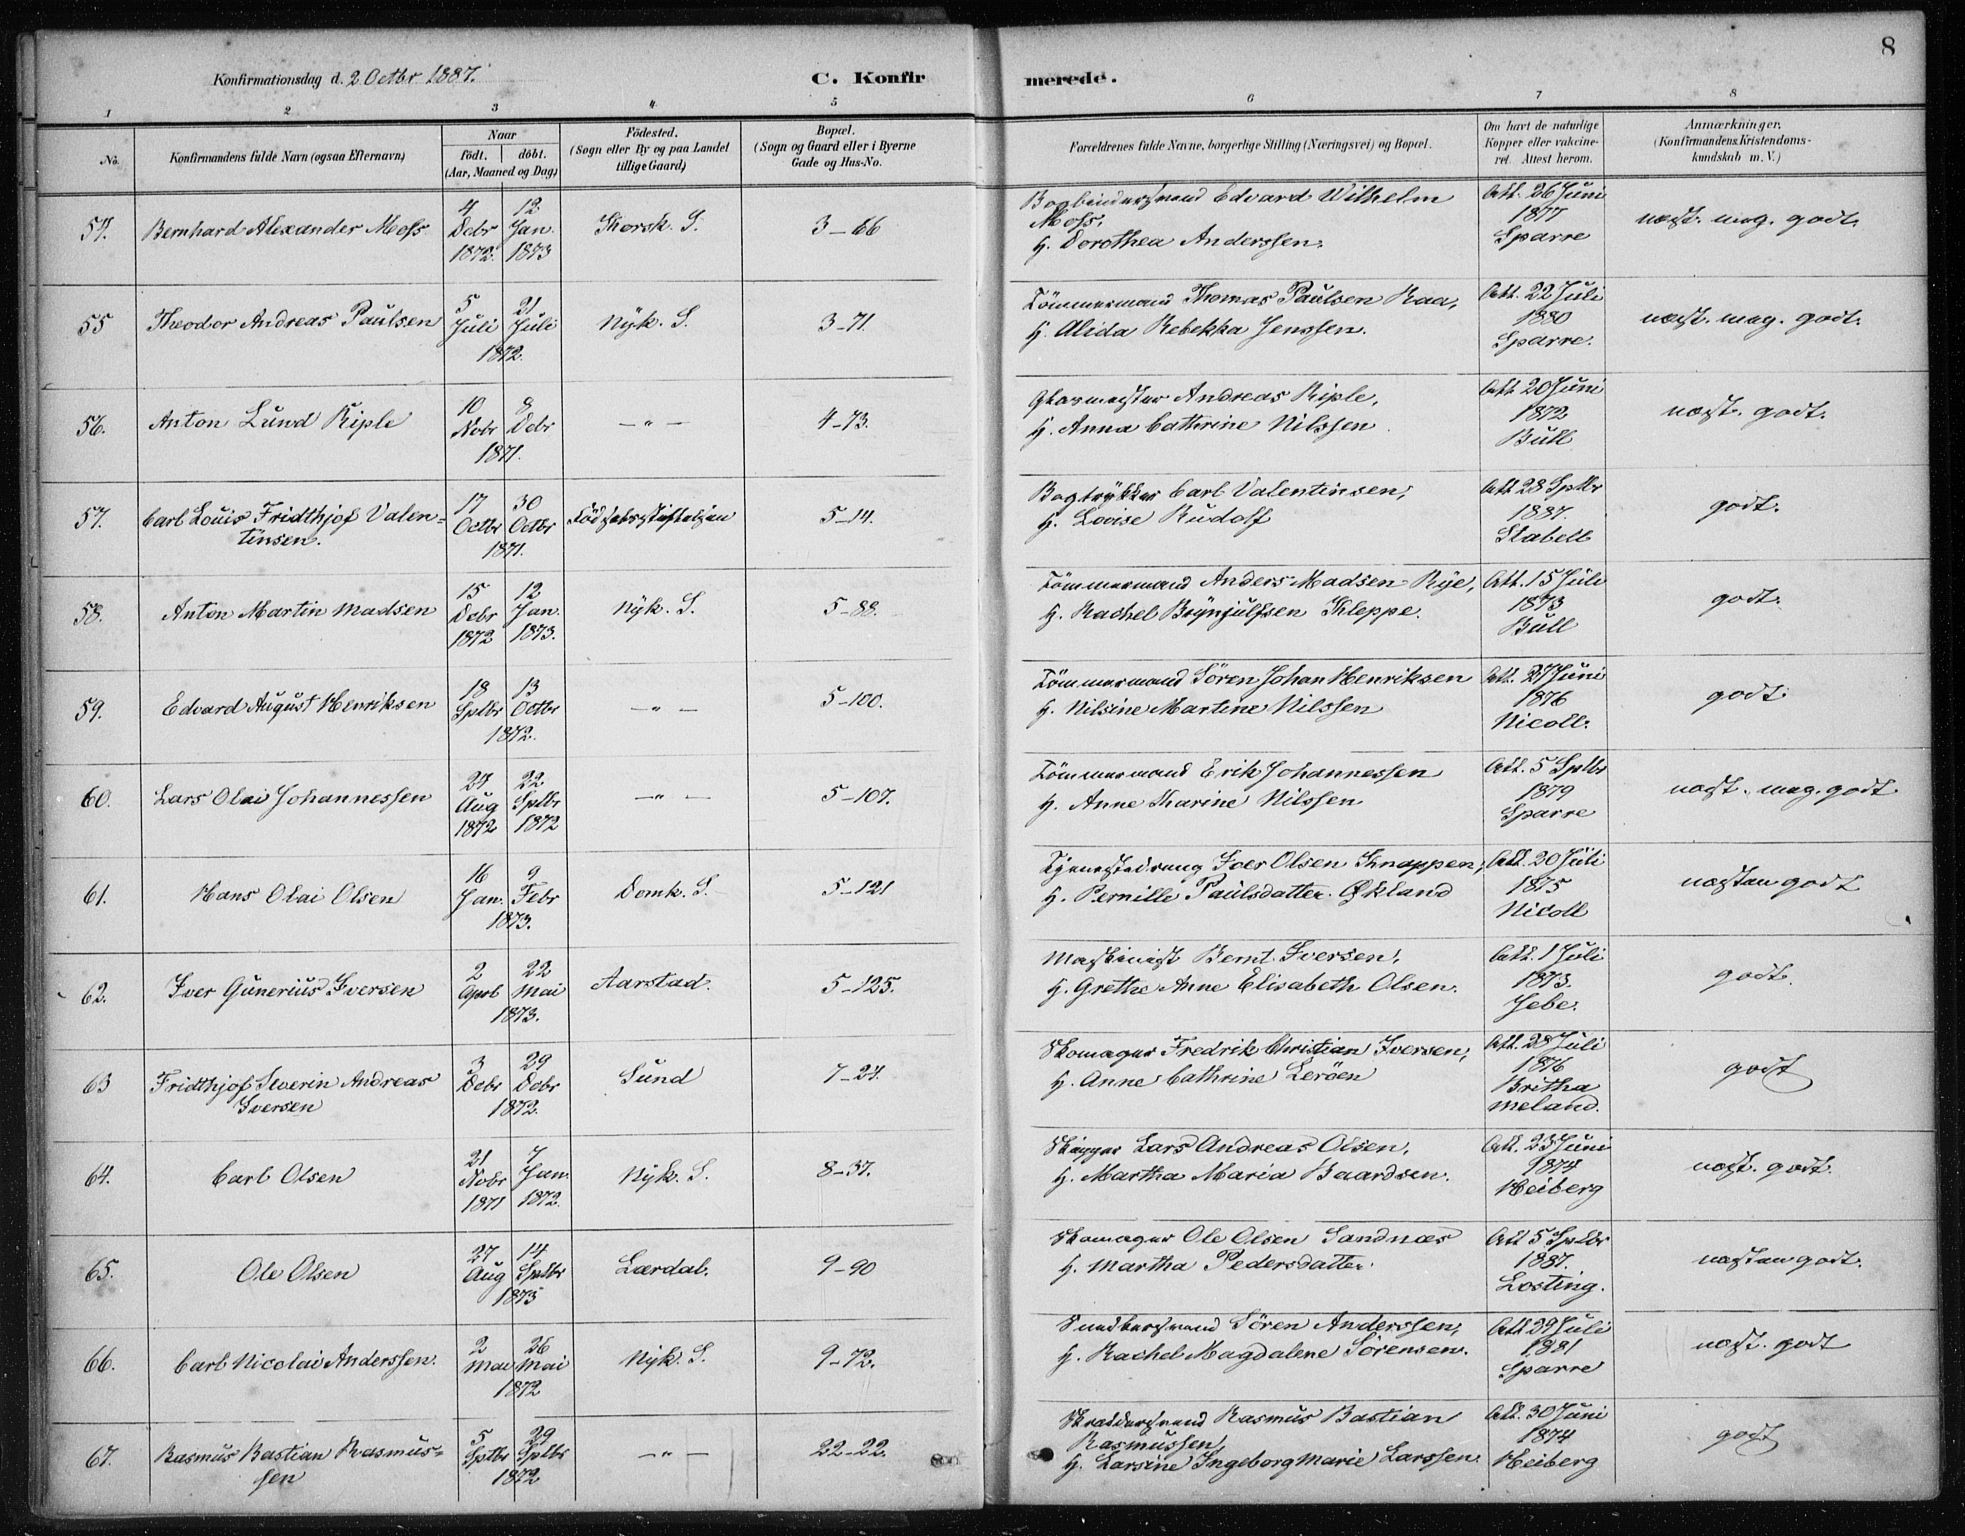 8
Konfirmationsdag d. 2 Octbr 1887.
C. Konfirmerede.
1 2 3 4 5 6 7 8
No.
Konfirmandens fulde Navn (ogsaa Efternavn)
Naar
födt. | döbt.
(Aar, Maaned og Dag)
Födested.
(Sogn eller By og paa Landet
tillige Gaard)
Bopæl.
(Sogn og Gaard eller i Byerne
Gade og Hus-No.
Forældrenes fulde Navne, borgerlige Stilling (Næringsvei) og Bopæl.
Om havt de naturlige
Kopper eller vakcine-
ret. Attest herom.
Anmærkninger.
(Konfirmandens Kristendoms-
kundskab m. V.)
54. Bernhard Alexander Moss 4 Debr 1872. 12 Jan. 1873 Korsk. S. 3-66
Bogbindersvend Edvard Wilhelm
Moss,
H. Dorothea Anderssen.
Att. 26 Juni
1877
Sparre
næst. meg. godt.
55 Theodor Andreas Paulsen 5 Juli 21 Juli 1872. Nyk. S. 3-71.
Tömmermand Thomas Paulsen Raa,
H. Alida Rebekka Jenssen.
Att. 22 Juli
1880
Sparre.
næst. meg. godt.
56. Anton Lund Riple 10 Nobr 8 Debr 1871. -„- 4-73.
Andreas Riple,
H. Anna Cathrine Nilssen
Att 20 Juni
1872
Bull
næst. godt.
57. Carl Louis Fridthjof Valen-
tinsen. 17 Octbr 30 Octbr 1871. Födselsstiftelsen 5-14.
Bogtrykker Carl Valentinsen,
H. Lovise Rudolf
Att 28 Sptbr
1887.
Stabell
godt.
58. Anton Martin Madsen 15 Debr 1872 12 Jan. 1873. Nyk. S. 5-88.
Tömmermand Anders Madsen Rye,
H. Rachel Brynjulfsen Kleppe.
Att. 15 Juli
1873
Bull
godt.
59. Edvard August Henriksen 18 Sptbr 13 Octbr 1872. -„- 5-100.
Tömmermand Sören Johan Henriksen
H. Nilsine Martine Nilssen
Att. 27 Juni
1876
Nicoll.
godt.
60. Lars Olai Johannessen 27 Aug 1872 22 Sptbr 1872 -„- 5-107.
Tömmermand Erik Johannessen
H. Anne Tharine Nilssen
Att. 5 Sptbr
1879
Sparre
næst. meg. godt.
61. Hans Olai Olsen 16 Jan. 9 Febr 1873. Domk. S. 5-121
Tjenestedreng Iver Olsen Knappen,
H. Pernille Paulsdatter Økland
Att. 20 Juli
1875
Nicoll
næsten godt
62. Iver Gunerius Iversen 2 April 22 Mai 1873. Aarstad. 5-125.
Maskinist Bernt Iversen,
H. Grethe Anne Elisabeth Olsen.
Att. 1 Juli
1873.
Jebe.
godt.
63 Fridthjof Severin Andreas
Iversen 3 Debr 29 Debr 1872. Sund 7-24.
Skomager Fredrik Christian Iversen,
H. Anne Cathrine Leröen
Att. 28 Juli
1876
Britha
Meland.
godt
64. Carl Olsen 21 Nobr 1871 7 Jan. 1872. Nyk. S. 8-37.
Skipper Lars Andreas Olsen.
H. Martha Maria Baardsen.
Att. 23 Juni
1874
Heiberg
næst. godt.
65. Ole Olsen 27 Aug 14 Sptbr 1873 Lærdal. 9-90
Skomager Ole Olsen Sandnæs
H. Martha Pedersdatter.
Att 5 Sptbr
1887.
Losting.
næsten godt.
66. Carl Nicolai Anderssen. 2 Mai 26 Mai 1872 Nyk. S. 9-72.
Snedkersvend Sören Anderssen,
H. Rachel Magdalene Sörensen.
Att 29 Juli
1881
Sparre
næst. godt
67. Rasmus Bastian Rasmus-
sen 5 Sptbr 29 Sptbr 1872 -„- 22-22.
Skræddersvend Rasmus Bastian
Rasmussen,
H. Larsine Ingeborg Marie Larssen.
Att. 30 Juni
1874
Heiberg
godt